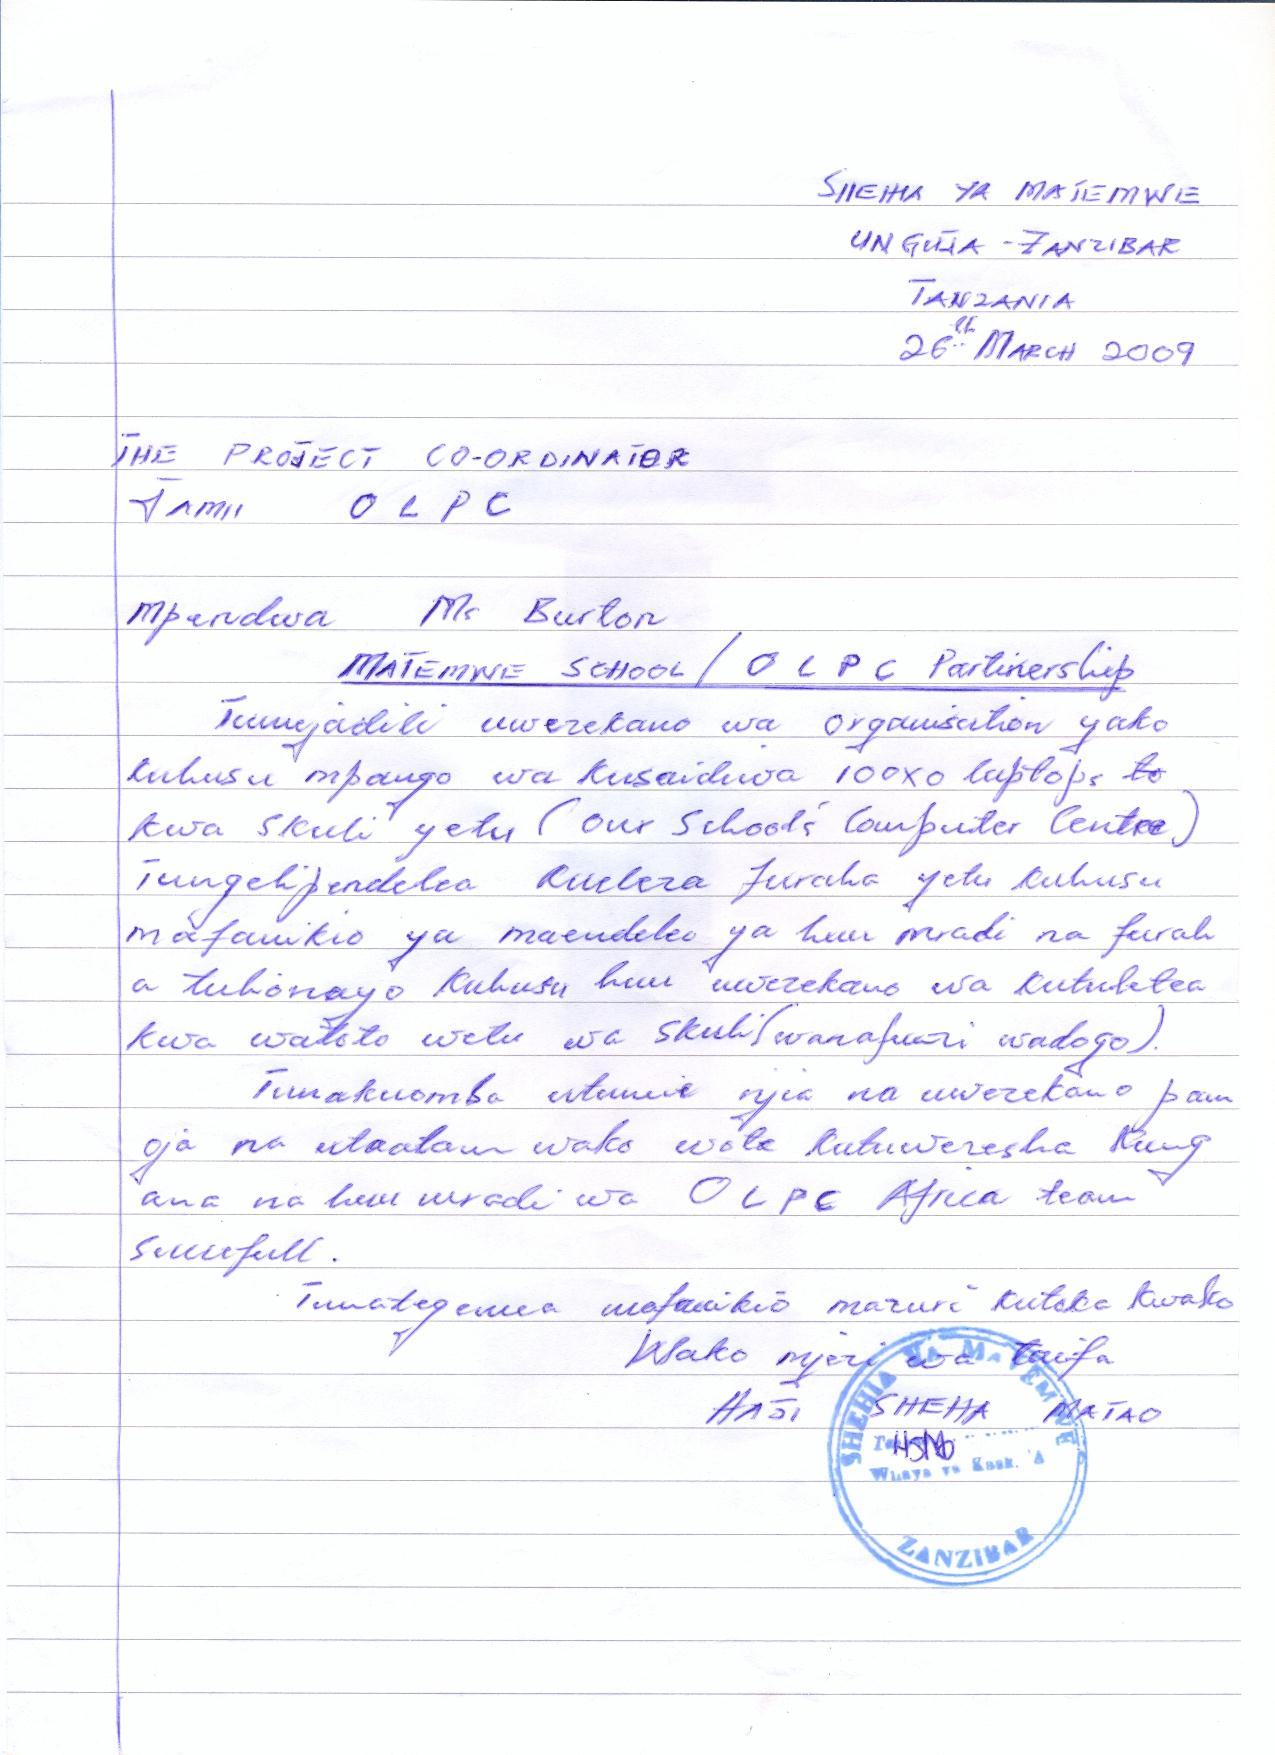 SHEHA YA MATEMWE
UNGUJA - ZANZIBAR
TANZANIA
26th MARCH 2009
THE PROJECT CO-ORDINATOR
JAMII OLPC
Mpendwa Ms Burton
MATEMWE SCHOOL / OLPC Partinership
Tumejadili uwezekano wa organisation yako
kuhusu mpango wa kusaidiwa 100XO laptops to
kwa skuli yetu (our School's Computer Centre)
Tungelipendelea kueleza furaha yetu kuhusu
mafanikio ya maendeleo ya huu mradi na furah
a tulionayo kuhusu huu uwezekano wa kutuletea
kwa watoto wetu wa skuli (wanafunzi wadogo).
Tunakuomba utumie njia na uwezekano pam
oja na utaalam wako wote kutuwezesha kung
ana na huu mradi wa OLPC Africa team
Tunategemea mafanikio mazuri kutoka kwako
Wako mjezi wa taifa
HAJI SHEHA MATAO
HSM
SHEHIA YA MATEMWE
Wilaya ya Kask. 'A'
ZANZIBAR